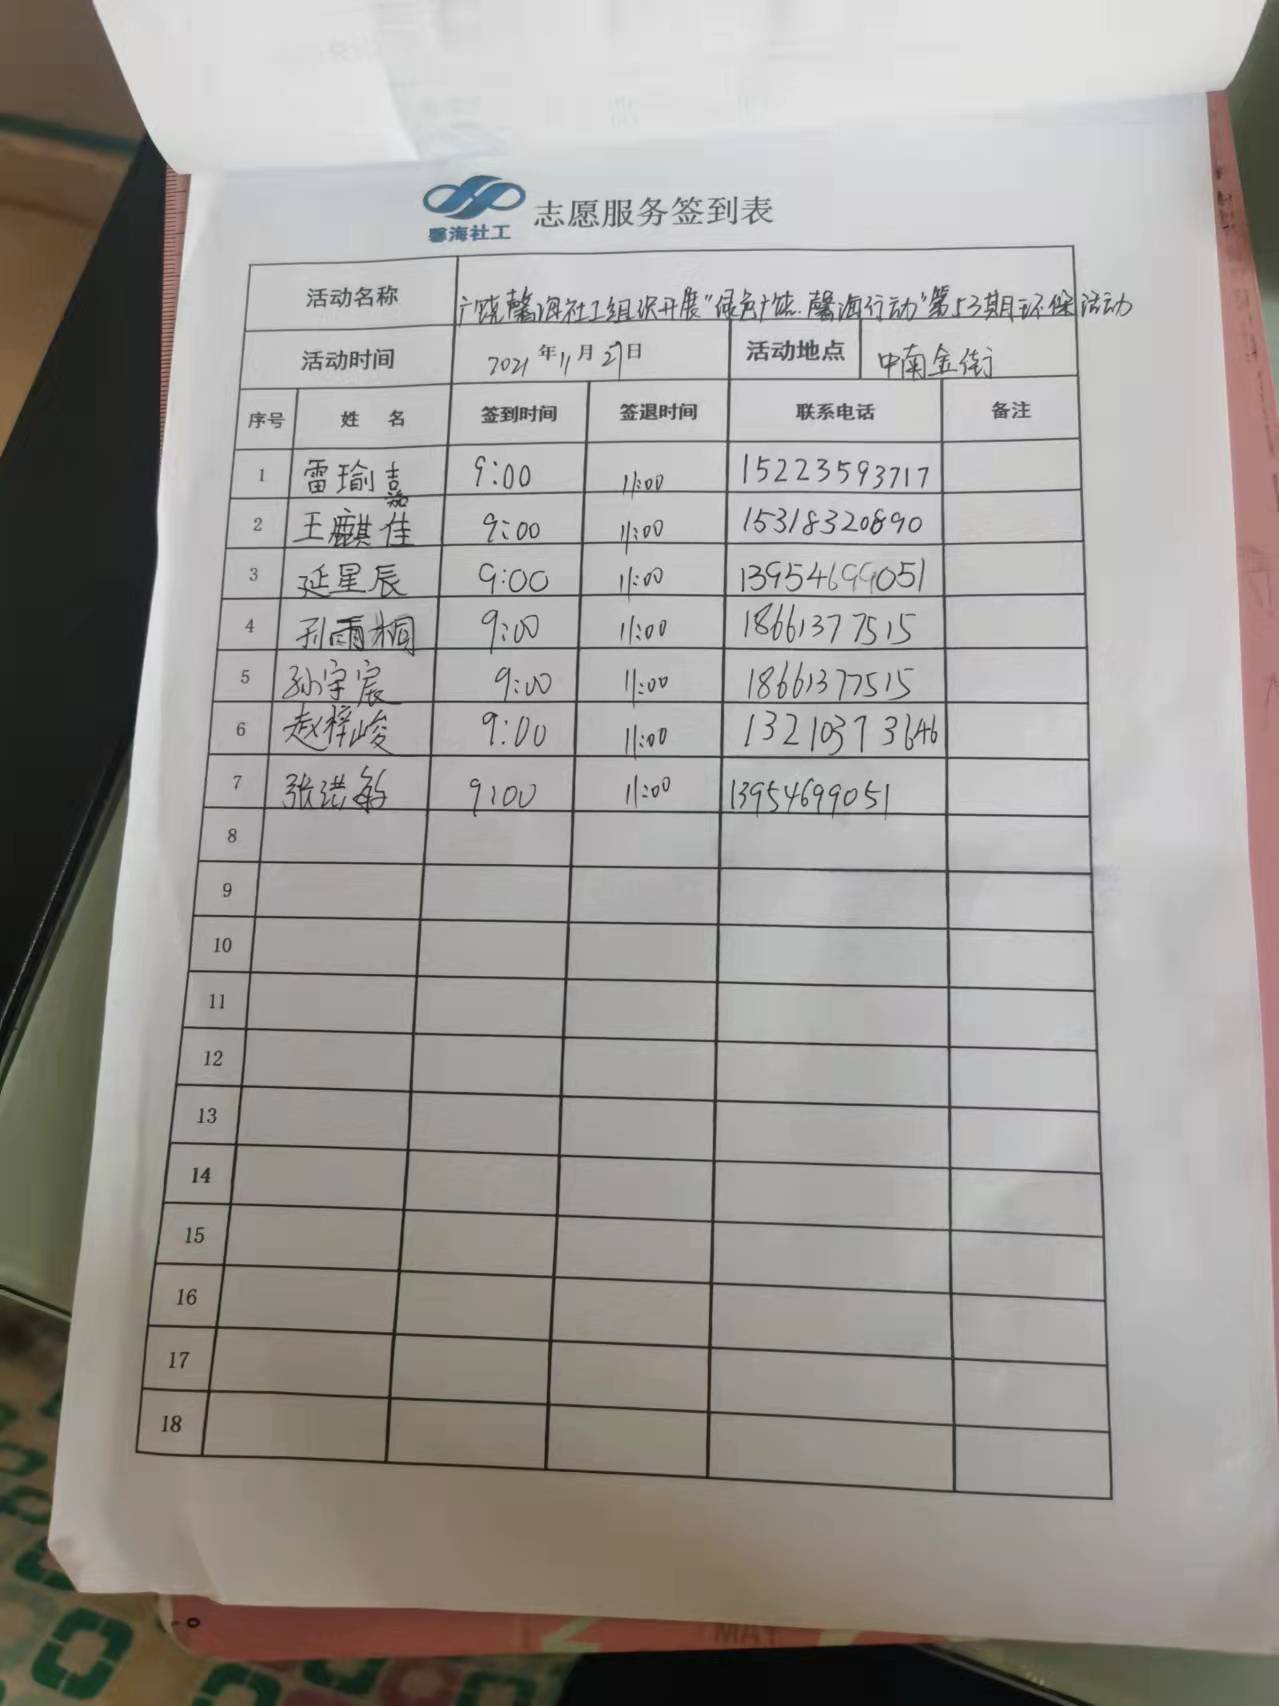 馨海社工 志愿服务签到表
活动名称 广饶馨海社工组织开展"绿色广饶·馨海行动"第53期环保活动
活动时间 2021年11月27日 活动地点 中南金街
序号 姓 名 签到时间 签退时间 联系电话 备注
1 雷瑜嘉 9:00 11:00 15223593717
2 王麒佳 9:00 11:00 15318320890
3 延星辰 9:00 11:00 13954699051
4 孙雨桐 9:00 11:00 18661377515
5 孙宇宸 9:00 11:00 18661377515
6 赵梓峻 9:00 11:00 13210373646
7 张洪敏 9:00 11:00 13954699051
8
9
10
11
12
13
14
15
16
17
18
MAY